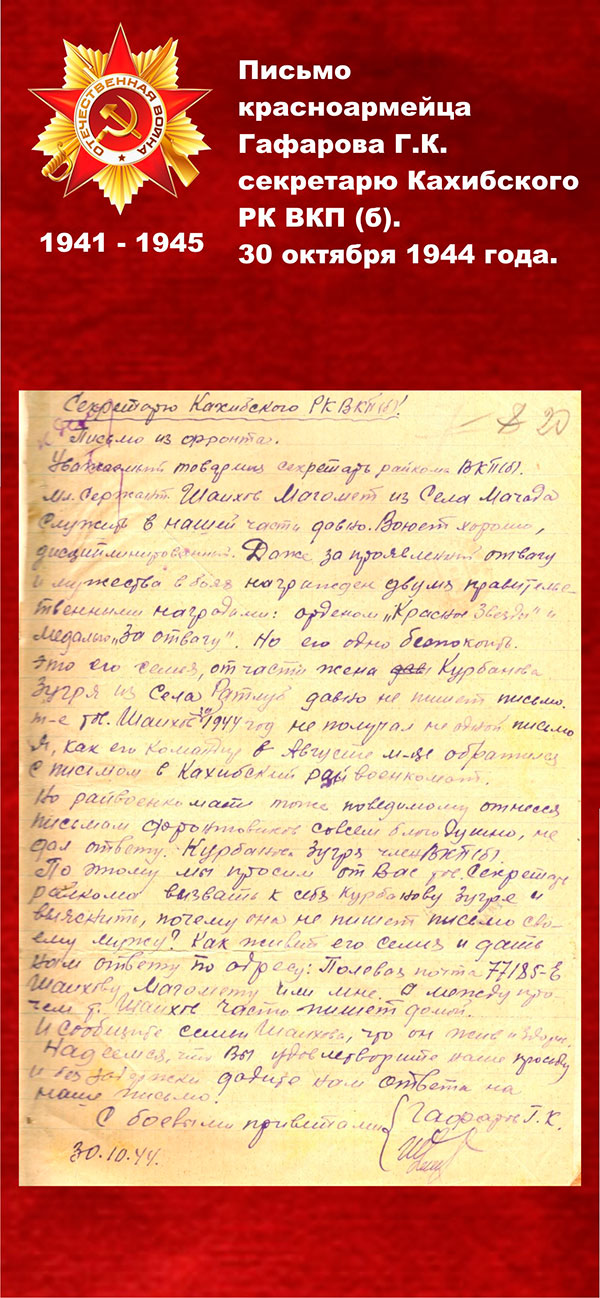 ОТЕЧЕСТВЕННАЯ ВОЙНА
1941 - 1945
Письмо
красноармейца
Гафарова Г.К.
секретарю Кахибского
РК ВКП (б).
30 октября 1944 года.
Секретарю Кахибского РК ВКП(б)!
20
Письмо из фронта.
Уважаемый товарищ секретарь райкома ВКП(б).
Мл. Сержант Шаихов Магомет из Села Мачада
Служит в нашей части давно. Воюет хорошо,
дисциплинированный. Даже за проявлений отвагу
и мужества в боях награжден двумя правительс-
твенными наградами: орденом „Красное Звезды" и
медалью „За отвагу". Но его одно беспокоить.
Это его семья, отчасти жена Курбанова
Зугря из Села Ратлуб давно не пишет письмо.
т-е тов. Шаихов 1944 год не получал не одной письмо
Я, как его командир в Августе м-це обратился
с письмом в Кахибский райвоенкомат.
Но райвоенкомати тоже поведимому отнесся
письмам фронтовиков совсем благодушно, не
дал ответу. Курбанова Зугря член ВКП(б).
По этому мы просим от Вас тов. Секретарь
райкома вызвать к себя Курбанову Зугре и
выяснить, почему она не пишет письмо сво-
ему мужу? Как живет его семья и дать
нам ответу по адресу: Полевая почта 77185-Е
Шаихову Магомету или мне. А между про-
чем т. Шаихов часто пишет домой.
И сообщите семьи Шаихова, что он жив и здоров.
Надеемся, что Вы удовлетворите наше просьбу
и без задержки дадите нам ответа на
наше письмо.
С боевыми приветами Гафаров Г.К.
30.10.44.